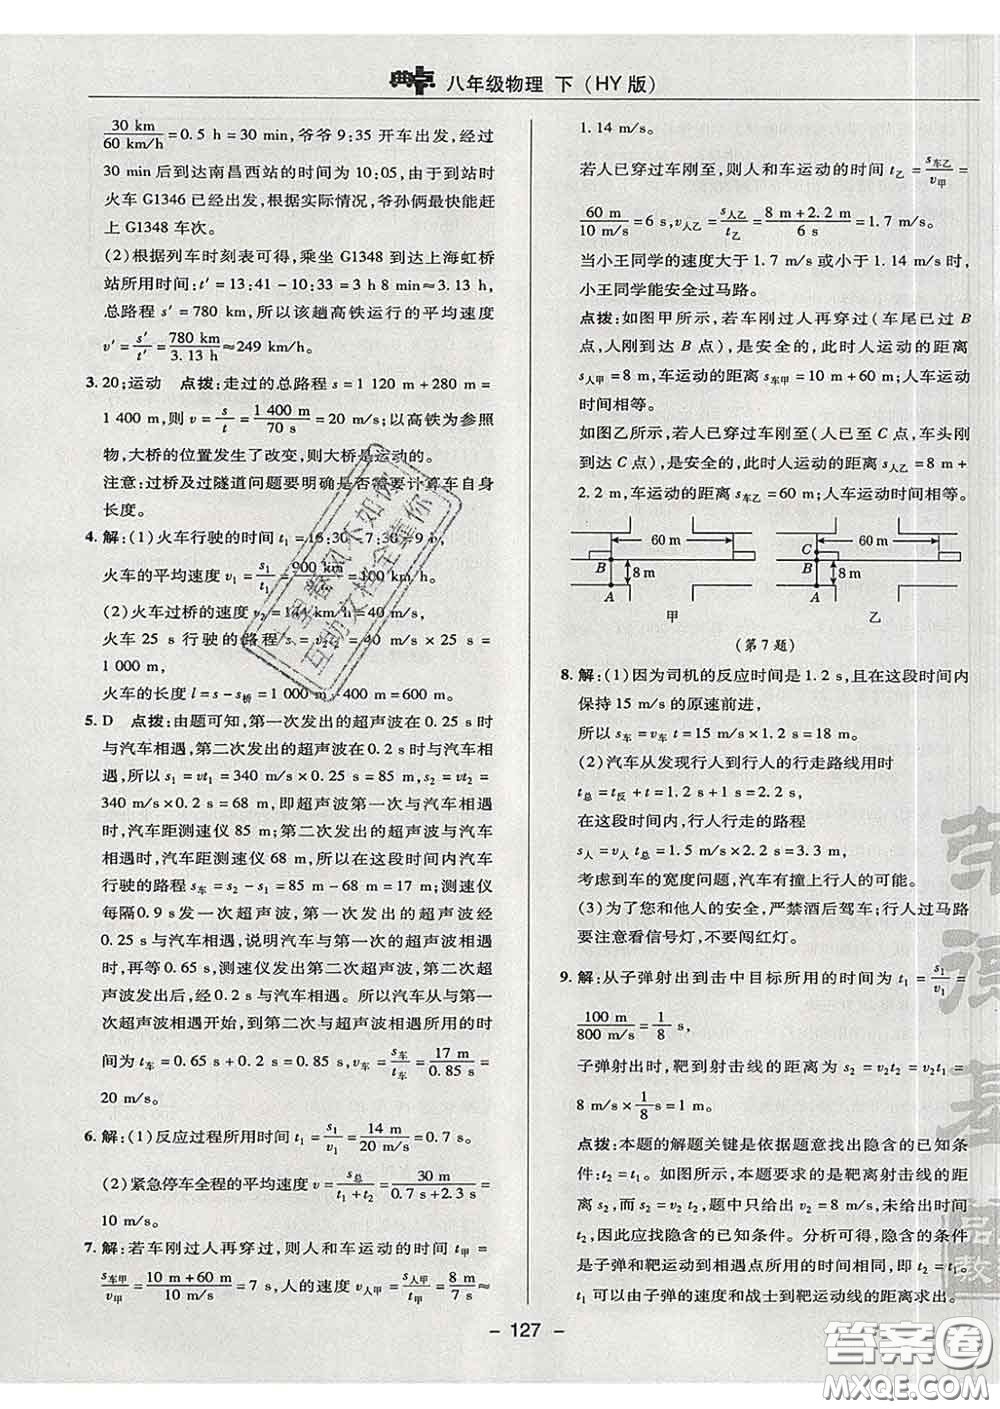 典点 八年级物理 下(HY 版)
30 km/60 km/h=0.5 h=30 min,爷爷 9:35 开车出发,经过
30 min后到达南昌西站的时间为10:05,由于到站时
火车G1346已经出发,根据实际情况,爷孙俩最快能赶
上 G1348 车次。
(2)根据列车时刻表可得,乘坐 G1348 到达上海虹桥
站所用时间:t′=13:41-10:33=3 h 8 min≈3.13 h,
总路程 s′=780 km,所以该趟高铁运行的平均速度
v′=s′/t′=780 km/3.13 h≈249 km/h。
3. 20;运动 点拨:走过的总路程 s=1 120 m+280 m=
1 400 m,则 v=s/t=1 400 m/70 s=20 m/s;以高铁为参照
物,大桥的位置发生了改变,则大桥是运动的。
注意:过桥及过隧道问题要明确是否需要计算车自身
长度。
4. 解:(1)火车行驶的时间 t₁=16:30-7:30=9 h,
火车的平均速度 v₁=s₁/t₁=900 km/9 h=100 km/h。
(2)火车过桥的速度 v₂=144 km/h=40 m/s,
火车 25 s 行驶的路程 s=v₂t₂=40 m/s×25 s=
1 000 m,
火车的长度 l=s-s桥=1 000 m-400 m=600 m。
5. D 点拨:由题可知,第一次发出的超声波在 0.25 s时
与汽车相遇,第二次发出的超声波在 0.2 s与汽车相
遇,所以 s₁=vt₁=340 m/s×0.25 s=85 m,s₂=vt₂=
340 m/s×0.2 s=68 m,即超声波第一次与汽车相遇
时,汽车距测速仪 85 m;第二次发出的超声波与汽车
相遇时,汽车距测速仪 68 m,所以在这段时间内汽车
行驶的路程 s车=s₂-s₁=85 m-68 m=17 m;测速仪
每隔0.9 s发一次超声波,第一次发出的超声波经
0.25 s与汽车相遇,说明汽车与第一次超声波相遇
时,再等 0.65 s,测速仪发出第二次超声波,第二次超
声波发出后,经 0.2 s与汽车相遇。所以汽车从与第
一次超声波相遇开始,到第二次与超声波相遇所用的时
间为 t车=0.65 s+0.2 s=0.85 s,v车=s车/t车=17 m/0.85 s=
20 m/s。
6. 解:(1)反应过程所用时间 t₁=s₁/v₁=14 m/20 m/s=0.7 s。
(2)紧急停车全程的平均速度 v=s总/t₁+t₂=30 m/0.7 s+2.3 s=
10 m/s。
7. 解:若车刚过人再穿过,则人和车运动的时间 t甲=
s车甲/v甲=10 m+60 m/10 m/s=7 s,人的速度 v人甲=s人甲/t甲=8 m/7 s≈
1.14 m/s。
若人已穿过车刚至,则人和车运动的时间 t乙=s车乙/v甲=
60 m/10 m/s=6 s,v人乙=s人乙/t乙=8 m+2.2 m/6 s=1.7 m/s。
当小王同学的速度大于 1.7 m/s或小于 1.14 m/s时,
小王同学能安全过马路。
点拨:如图甲所示,若车刚过人再穿过(车尾已过 B
点,人刚到达 B 点),是安全的,此时人运动的距离
s人甲=8 m,车运动的距离 s车甲=10 m+60 m;人车运动
时间相等。
如图乙所示,若人已穿过车刚至(人已至 C 点,车头刚
到达 C 点),是安全的,此时人运动的距离 s人乙=8 m+
2.2 m,车运动的距离 s车乙=60 m;人车运动时间相等。
60 m
B
8 m
A
甲
60 m
C
B
8 m
A
乙
(第 7 题)
8. 解:(1)因为司机的反应时间是 1.2 s,且在这段时间内
保持 15 m/s 的原速前进,
所以 s车=v车 t=15 m/s×1.2 s=18 m。
(2)汽车从发现行人到行人的行走路线用时
t总=t反+t=1.2 s+1 s=2.2 s,
在这段时间内,行人行走的路程
s人=v人 t总=1.5 m/s×2.2 s=3.3 m,
考虑到车的宽度问题,汽车有撞上行人的可能。
(3)为了您和他人的安全,严禁酒后驾车;行人过马路
要注意看信号灯,不要闯红灯。
9. 解:从子弹射出到击中目标所用的时间为 t₁=s₁/v₁=
100 m/800 m/s=1/8 s,
子弹射出时,靶到射击线的距离为 s₂=v₂t₂=v₂t₁=
8 m/s×1/8 s=1 m。
点拨:本题的解题关键是依据题意找出隐含的已知条
件:t₂=t₁。如图所示,本题要求的是靶离射击线的距
离 s₂,而 s₂=v₂t₂,题中只给出 v₂=8 m/s,未给出时间
t₂,因此应找隐含的已知条件。分析可得,隐含的条件
是子弹和靶运动到相遇点所用的时间相同,即 t₂=t₁。
t₁ 可以由子弹的速度和战士到靶运动线的距离求出。
- 127 -
答案圈
MXQE.COM